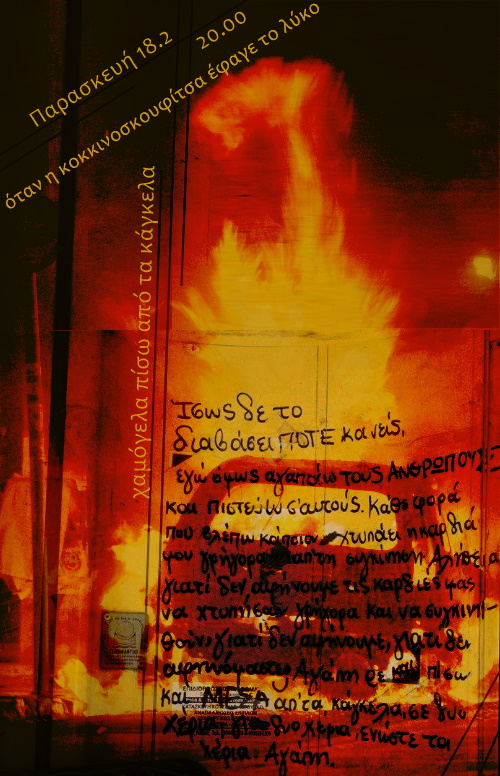 Παρασκευή 18.2
20.00
όταν η κοκκινοσκουφίτσα έφαγε το λύκο
χαμόγελα πίσω από τα κάγκελα
Ίσως δε το
διαβάσει ΠΟΤΕ κανείς,
εγώ όμως αγαπάω τους ΑΝΘΡΩΠΟΥΣ
και πιστεύω σ'αυτούς. Κάθε φορά
που βλέπω κάποιον χτυπάει η καρδιά
μου γρήγορα απ'τη συγκίνηση Αλήθεια
γιατί δεν αφήνουμε τις καρδιές μας
να χτυπήσουν γρήγορα και να συγκινη-
θούν; γιατί δεν αφήνουμε, γιατί δεν
Αγάπη ρε και πίσω
και απ'τα κάγκελα, σε δυο
χέρια δυο χέρια, ενώστε τα
χέρια. Αγάπη.